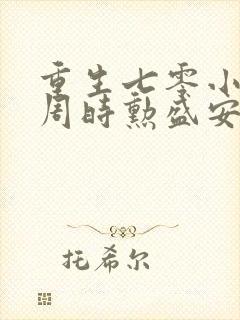 重生七零小
周时勲盛安
托希尔